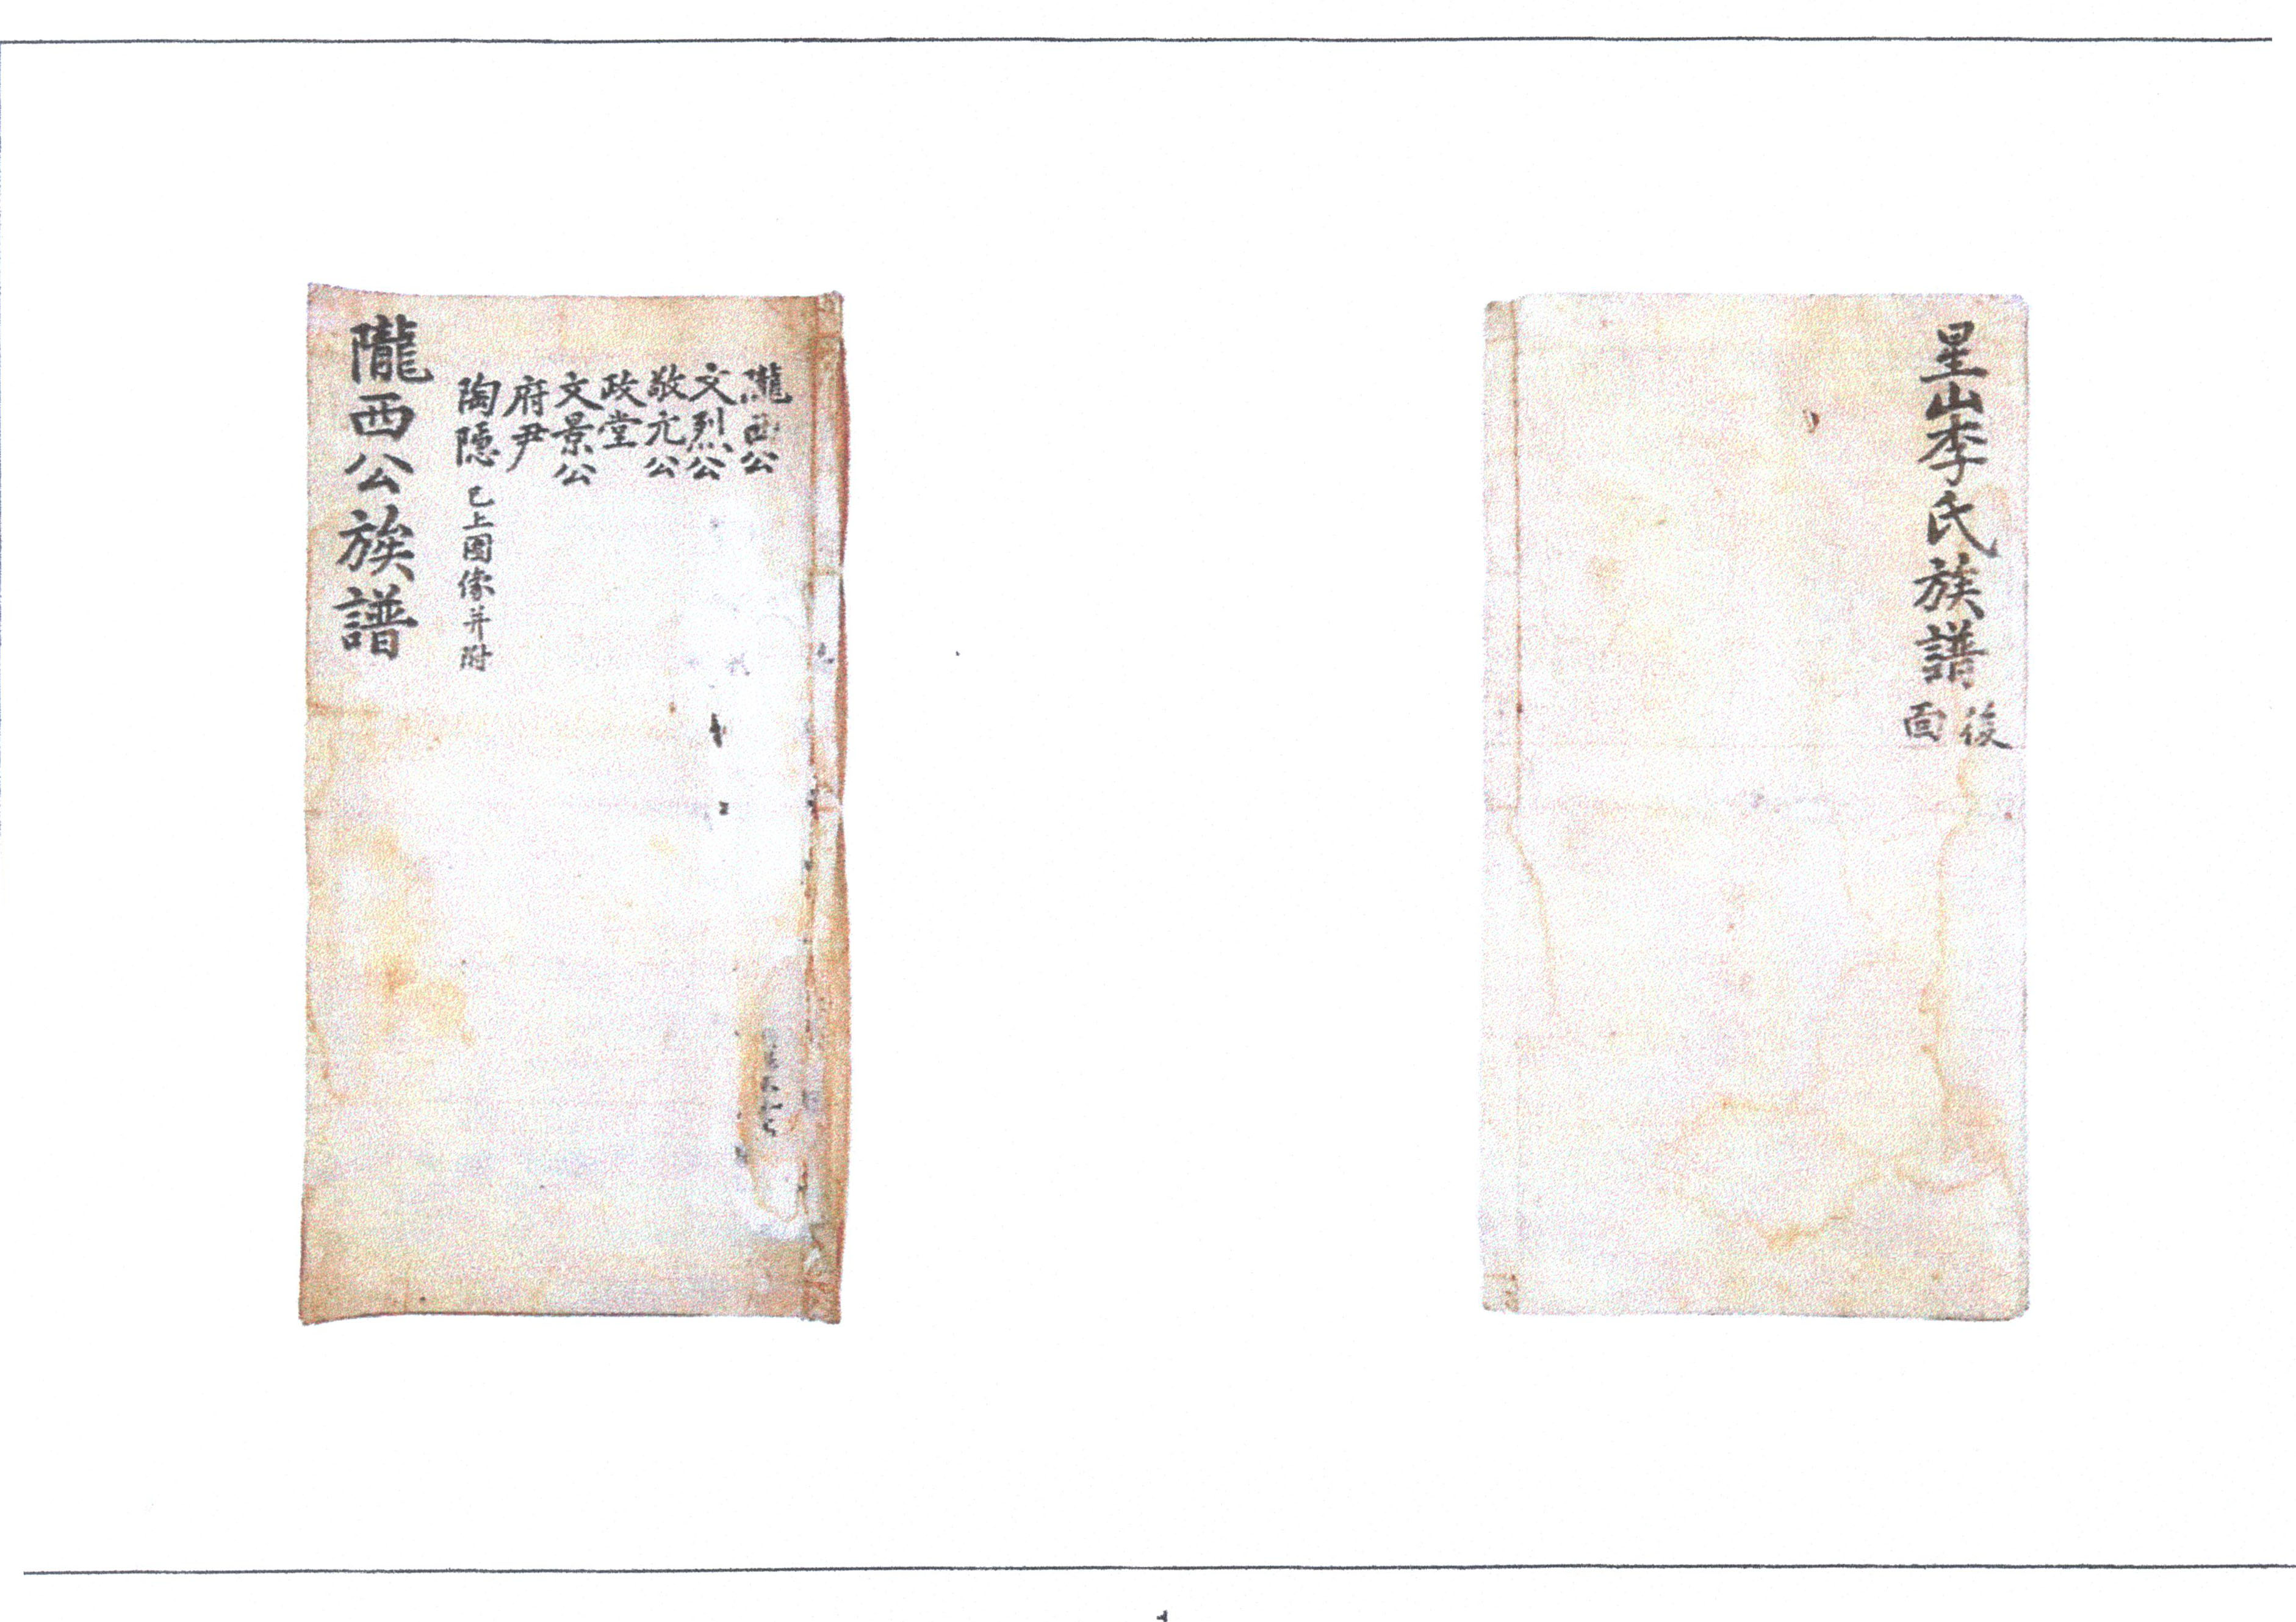 隴西公
文烈公
敬元公
政堂
文景公
府尹
陶隱 已上圖像并附
隴西公族譜
星山李氏族譜 後面
1